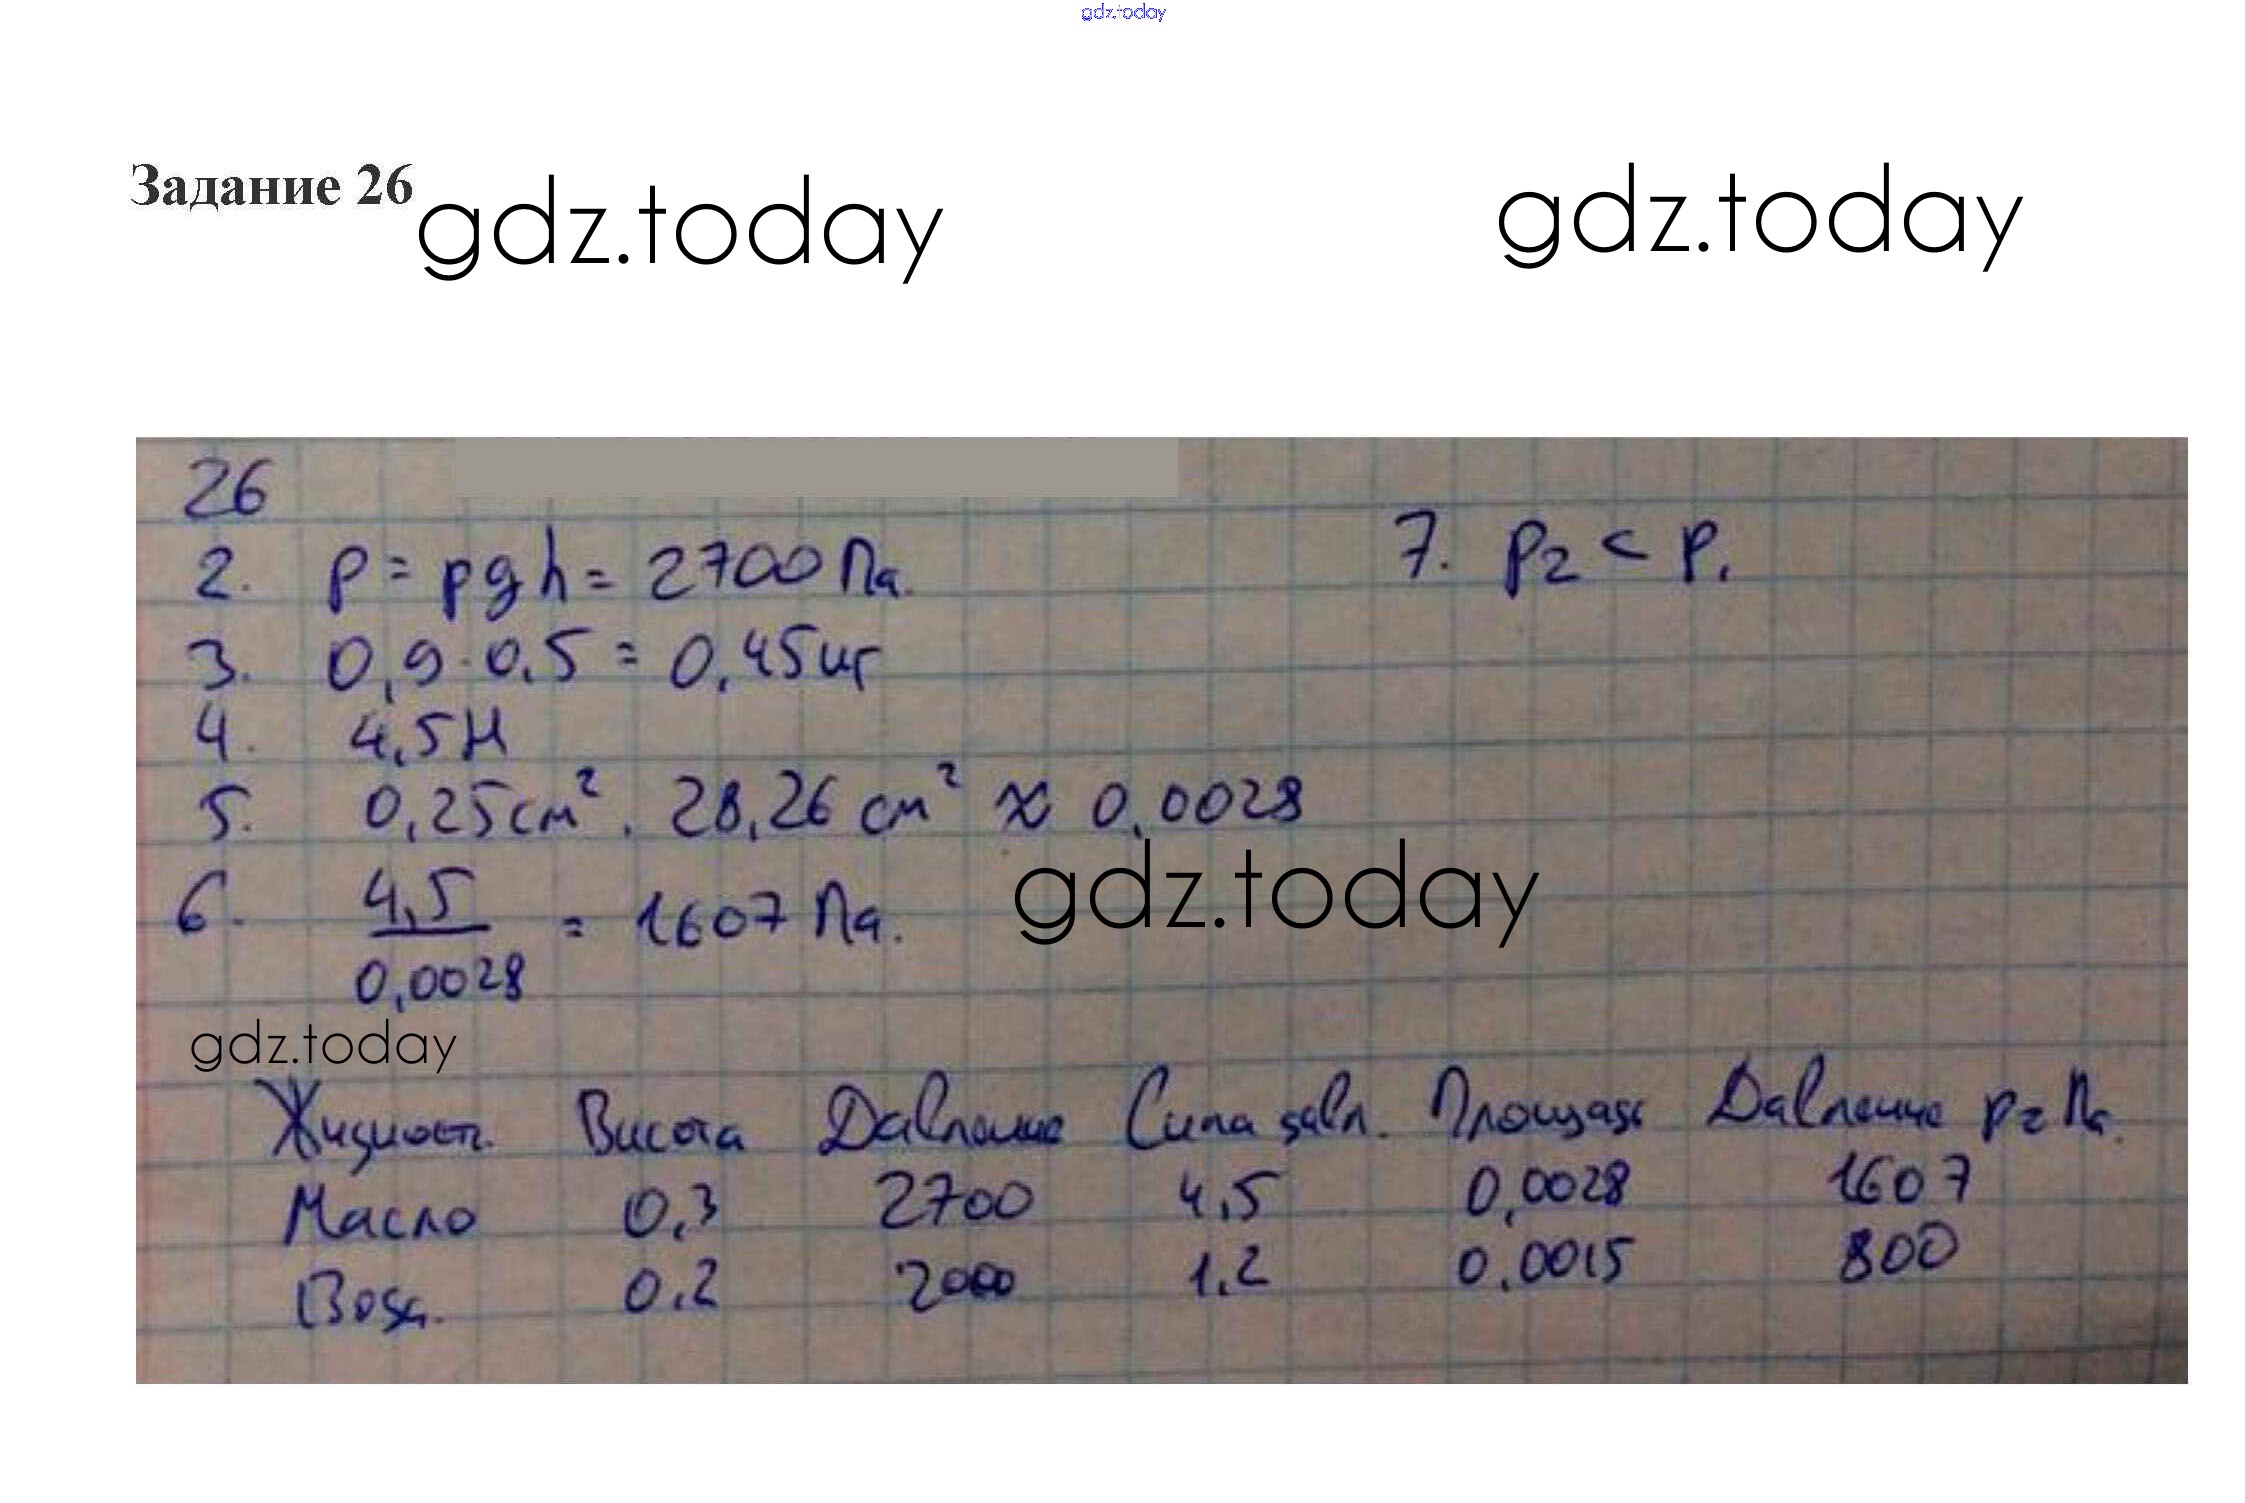 gdz.today
Задание 26
gdz.today
gdz.today
26
2. p = ρgh = 2700 Па.
7. p2 < p1
3. 0,9·0,5 = 0,45 кг
4. 4,5 Н
5. 0,25 см². 28,26 см² ≈ 0,0028
6. 4,5 / 0,0028 = 1607 Па.
gdz.today
gdz.today
Жидкость Висота Давление Сила давл. Площадь Давление p2 Па.
Масло 0,3 2700 4,5 0,0028 1607
Вода. 0,2 2000 1,2 0,0015 800